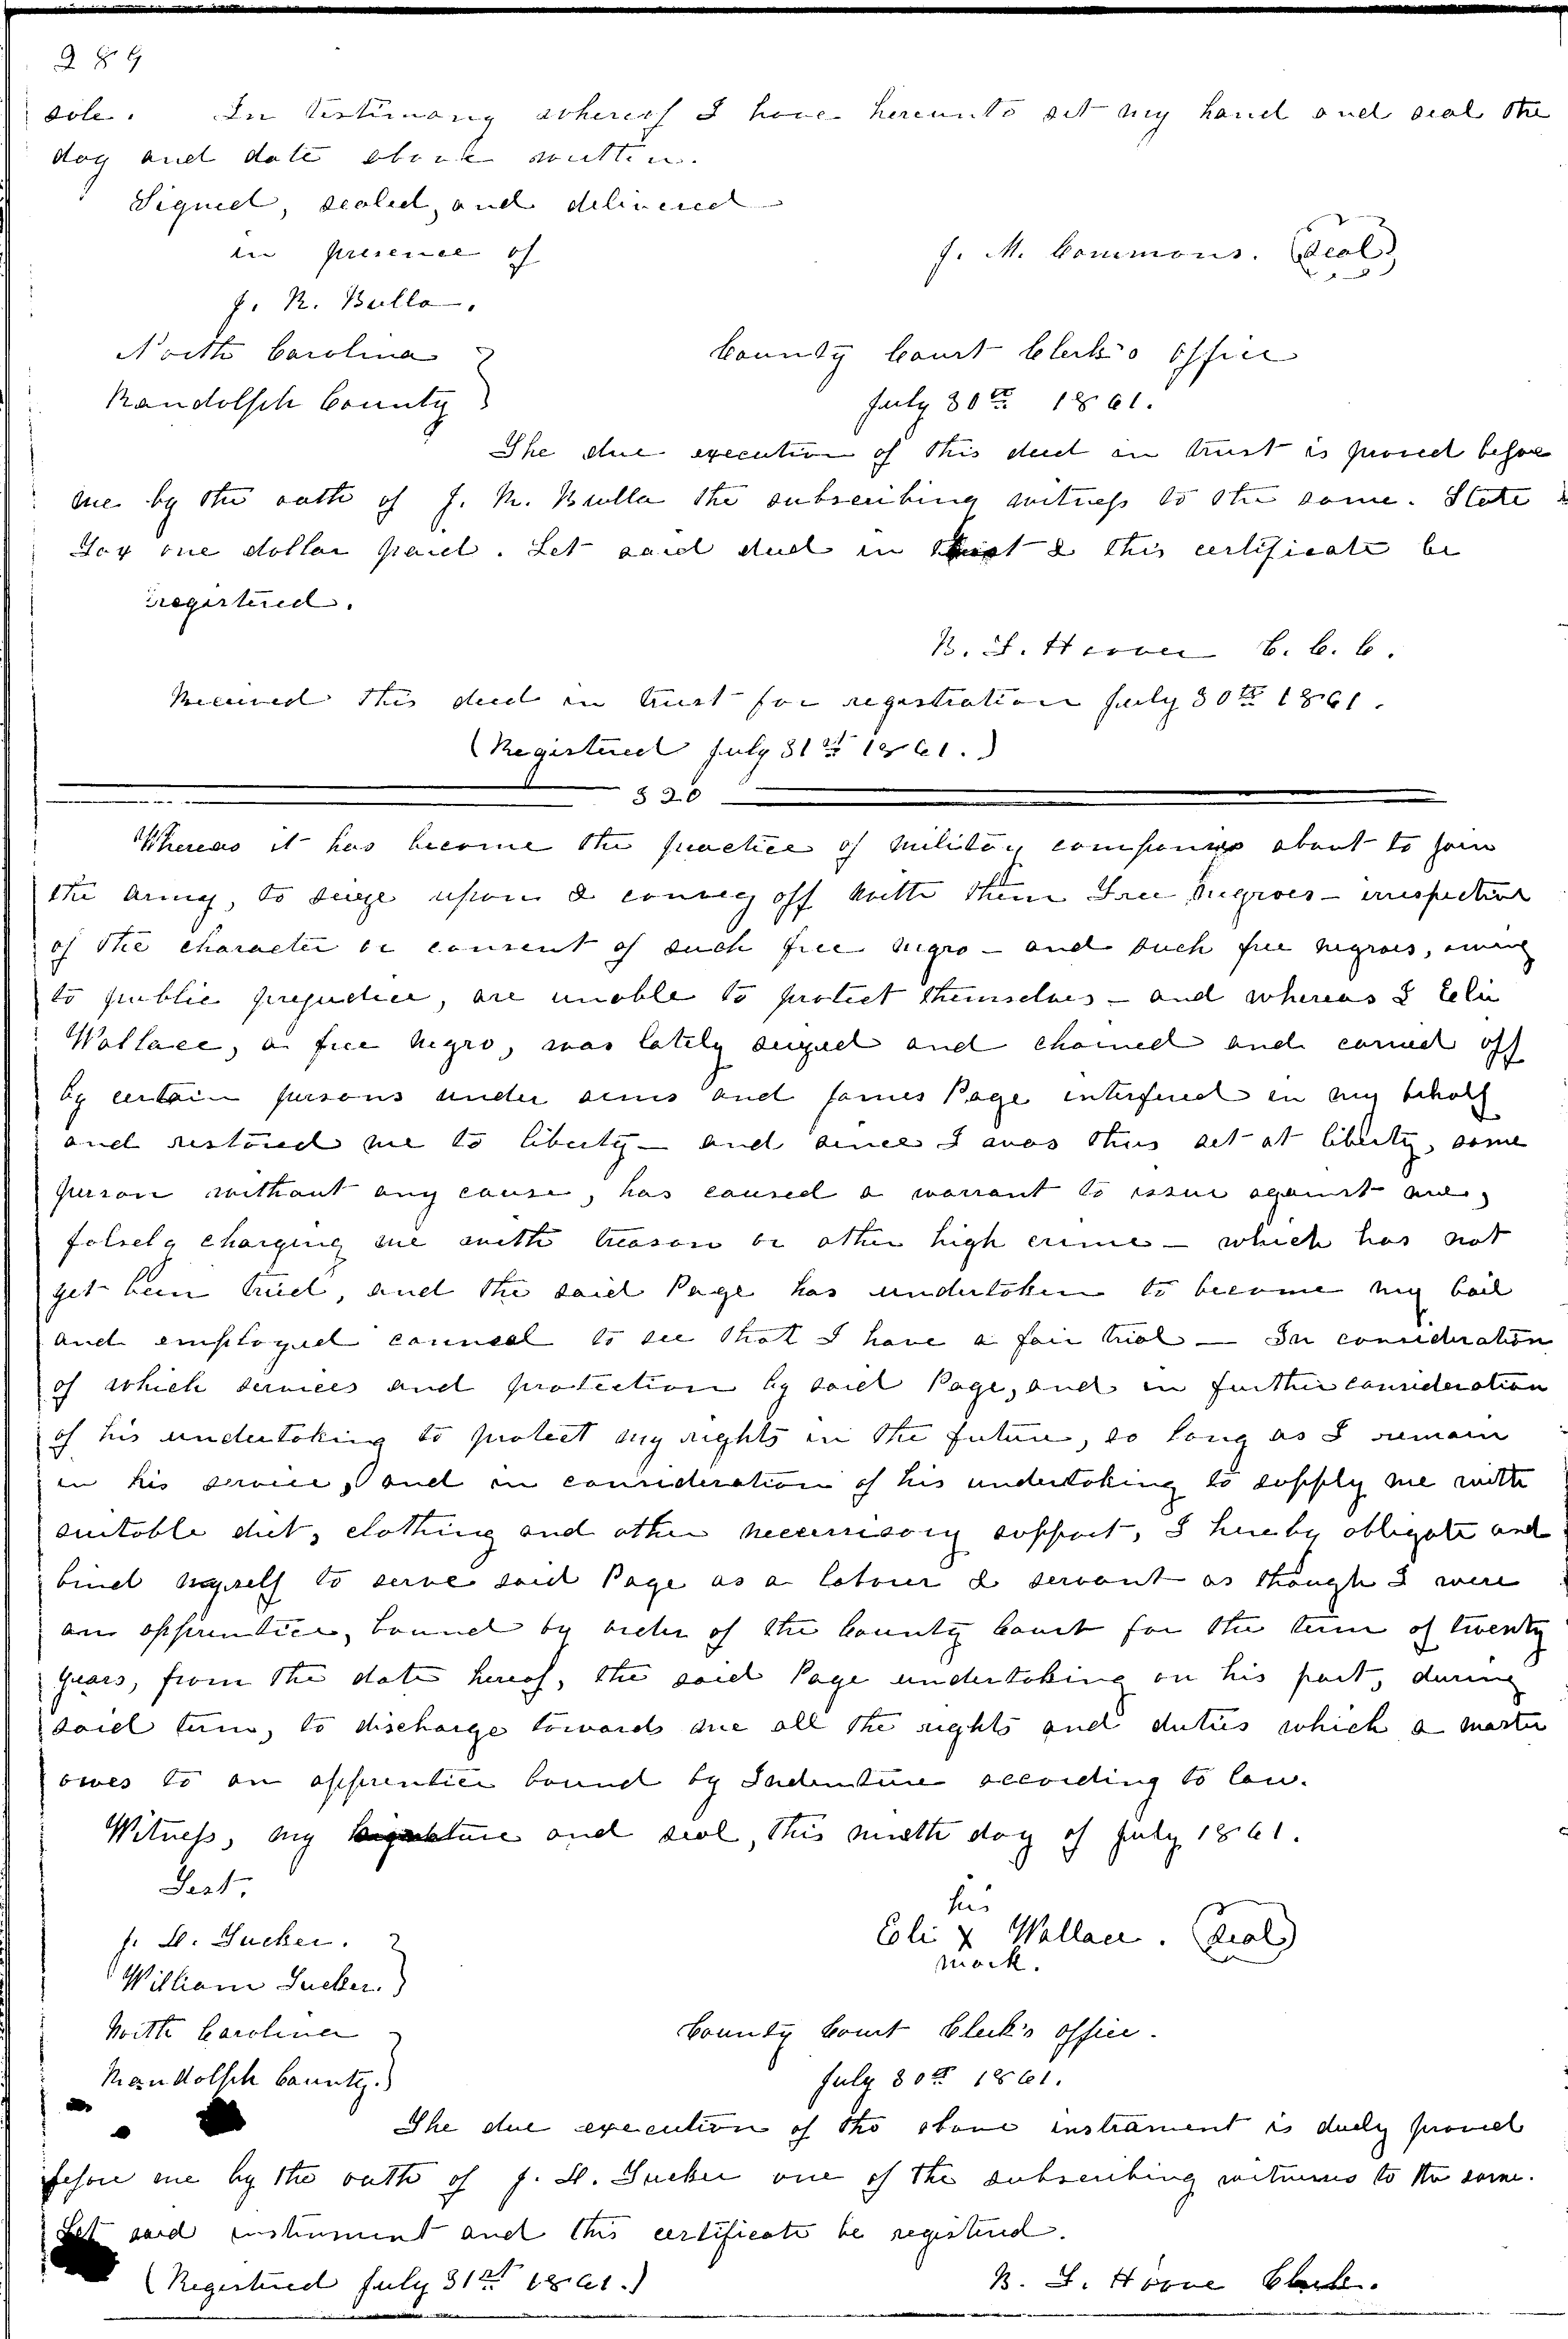 289
sole. In testimony whereof I have hereunto set my hand and seal the
day and date above written.
Signed, sealed, and delivered
in presence of
J. M. Commons. (Seal)
J. R. Bulla.
North Carolina
Randolph County
County Court Clerk's Office
July 30th 1861.
The due execution of this deed in trust is proved before
me by the oath of J. R. Bulla the subscribing witness to the same. State
Tax one dollar paid. Let said deed in trust & this certificate be
registered.
B. F. Hoover C. C. C.
Received this deed in trust for registration July 30th 1861.
(Registered July 31st 1861.)
320
Whereas it has become the practice of military companies about to join
the army, to seize upon & convey off with them Free Negroes - irrespective
of the character or consent of such free negro - and such free negroes, owing
to public prejudice, are unable to protect themselves - and whereas I Eli
Wallace, a free negro, was lately seized and chained and carried off
by certain persons under arms and James Page interfered in my behalf
and restored me to liberty - and since I was thus set at liberty, some
person without any cause, has caused a warrant to issue against me,
falsely charging me with treason or other high crime - which has not
yet been tried, and the said Page has undertaken to become my bail
and employed counsel to see that I have a fair trial — In consideration
of which services and protection by said Page, and in further consideration
of his undertaking to protect my rights in the future, so long as I remain
in his service, and in consideration of his undertaking to supply me with
suitable diet, clothing and other necessary support, I hereby obligate and
bind myself to serve said Page as a laborer & servant as though I were
an apprentice, bound by order of the County Court for the term of twenty
years, from the date hereof, the said Page undertaking on his part, during
said term, to discharge towards me all the rights and duties which a master
owes to an apprentice bound by Indenture according to law.
Witness, my signature and seal, this ninth day of July 1861.
Test.
J. H. Tucker.
William Tucker.
his
Eli X Wallace. (Seal)
mark.
North Carolina
Randolph County.
County Court Clerk's office.
July 30th 1861.
The due execution of the above instrament is duely proved
before me by the oath of J. H. Tucker one of the subscribing witnesses to the same.
Let said instrument and this certificate be registered.
(Registered July 31st 1861.)
B. F. Hoover Clerk.